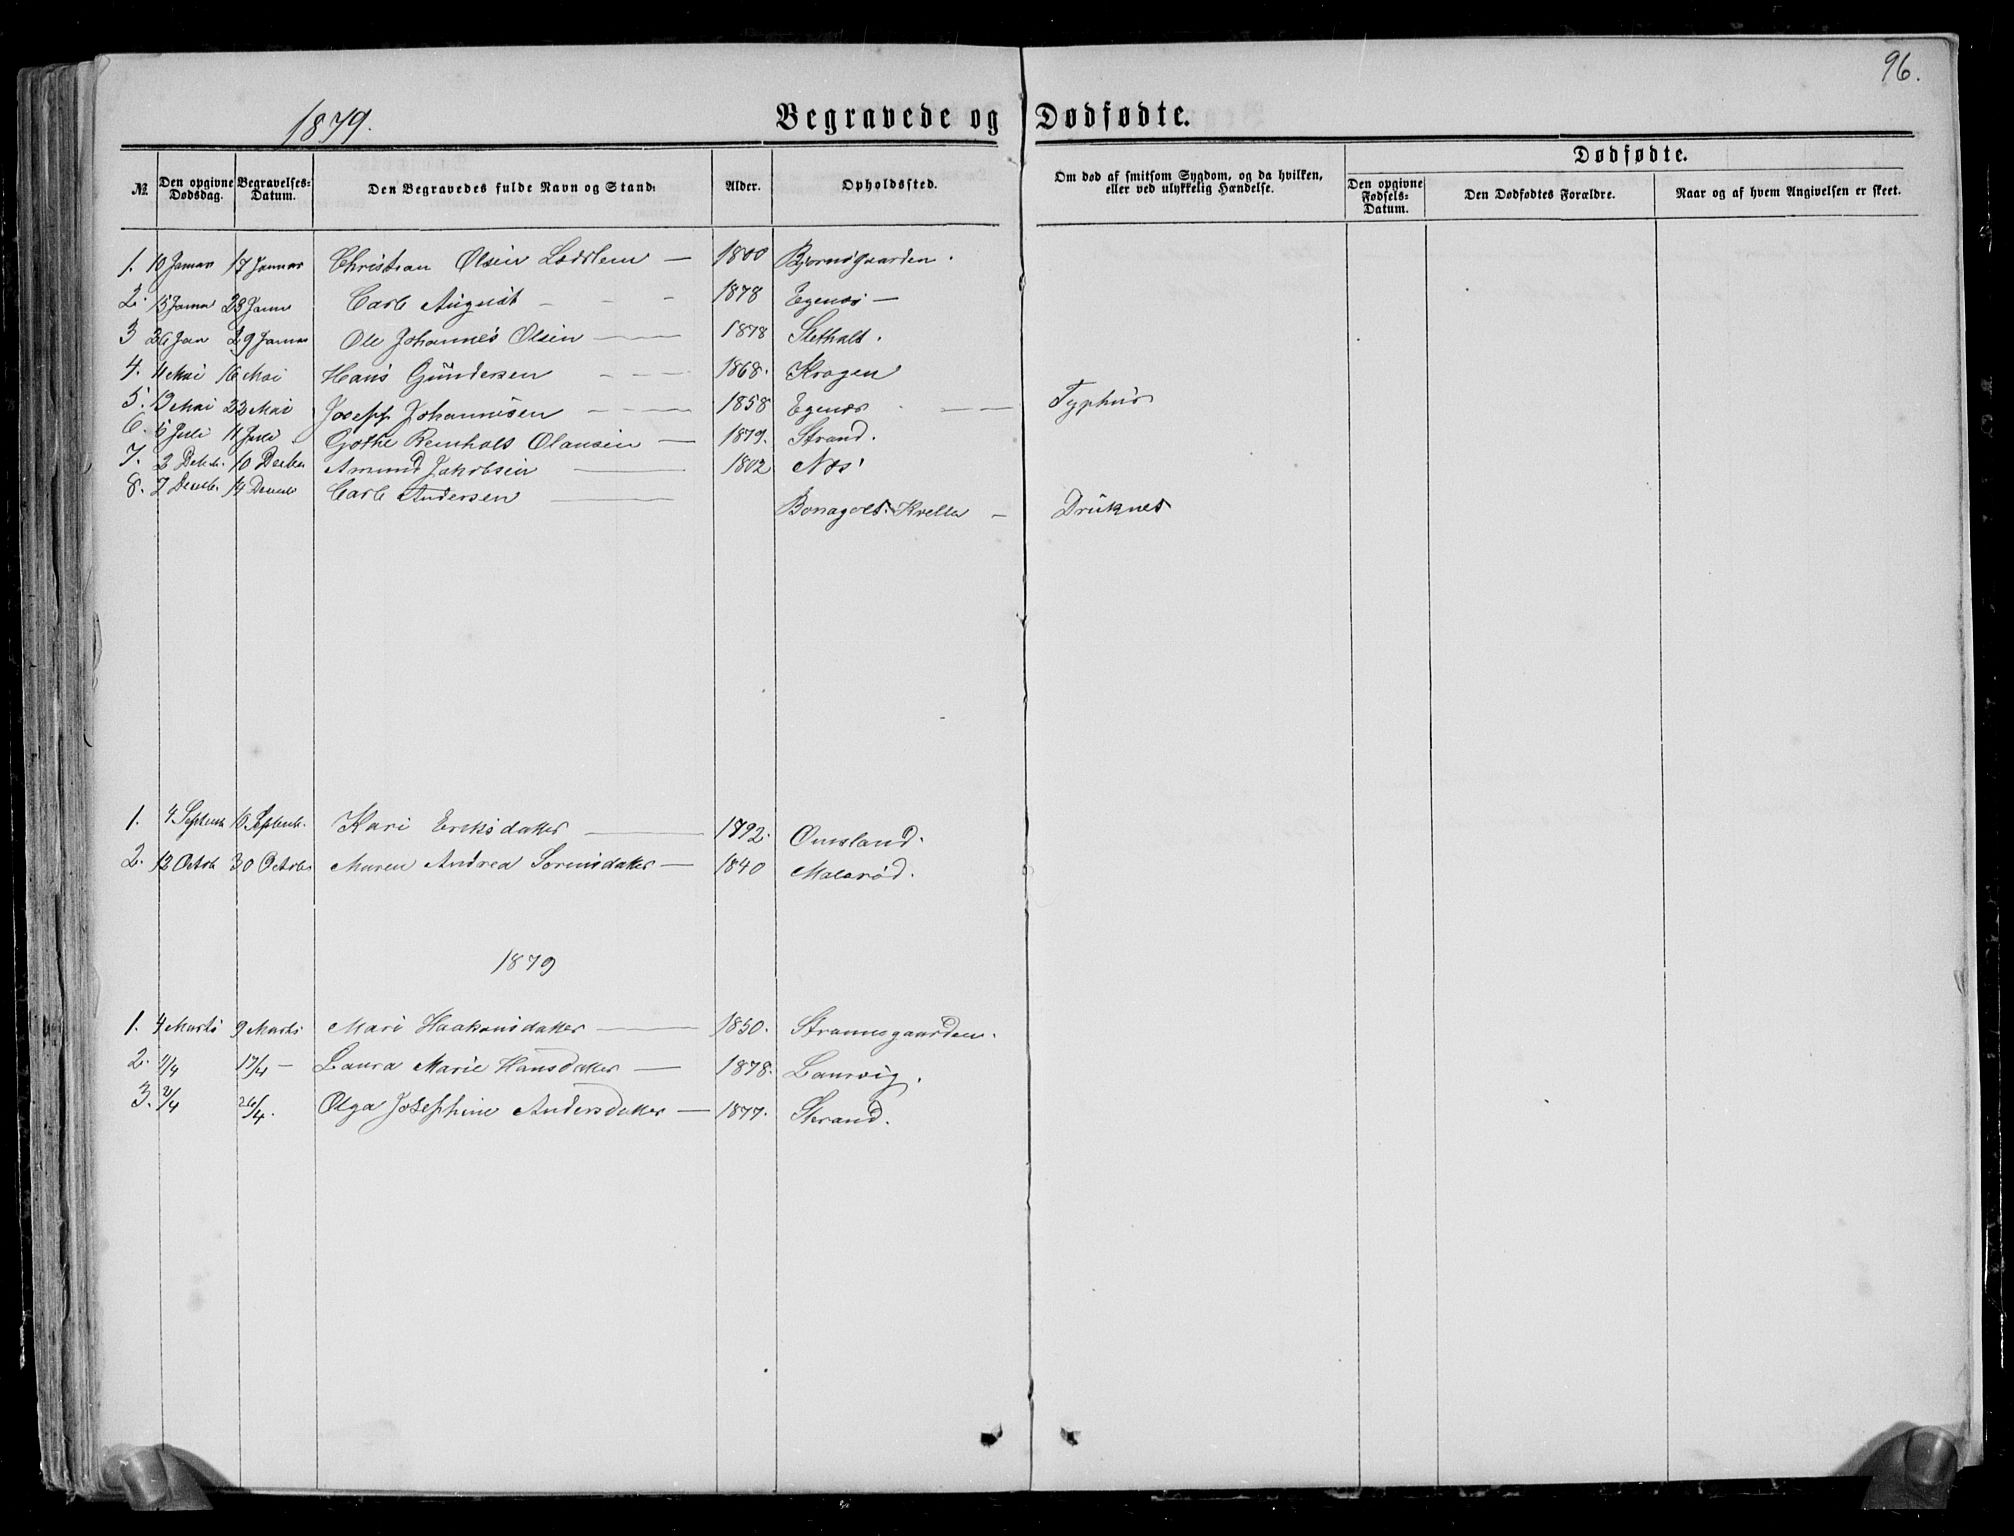 96.
1879.
Begravede og Dødfødte.
№ Den opgivne Dødsdag. Begravelses-Datum. Den Begravedes fulde Navn og Stand: Alder. Opholdssted. Om død af smitsom Sygdom, og da hvilken, eller ved ulykkelig Hændelse. Dødfødte.
Den opgivne Fødsels-Datum. Den Dødfødtes Forældre. Naar og af hvem Angivelsen er skeet.
1. 10 Januar 17 Januar Christian Olsen — 1800 Bjørnsgaarden.
2. 15 Janu 23 Janu Carl August - - - 1878 Egenæs —
3 26 Jan 29 Januar Ole Johannes Olsen — 1878 Slethalt.
4. 4 Mai 16 Mai Hans Gundersen — 1868. Krogen
5. 13 Mai 22 Mai Josef Johannesen — 1858 Egenæs — — Typhus
6. 6 Juli 11 Juli Gothe Reinholt Olausen — 1879. Strand.
7. 3 Decb. 10 Decber Amund Jakobsen — 1802 Næs
8. 7 Decemb. 14 Decemb Carl Andersen — Kvelle — Druknet
1. 4 Septemb 10 Septemb. Kari Eriksdatter — 1792. Omsland.
2. 12 Octob 30 Octobr Maren Andrea Sørensdatter — 1840 Malerød.
1879
1. 4 Marts 9 Marts Mari Haakonsdatter — 1850. Strannesgaarden.
2. 1/4 17/4 — Laura Marie Hansdatter — 1878. Laurvig.
3. 21/4 26/4. Olga Josephine Andersdatter — 1877. Strand.